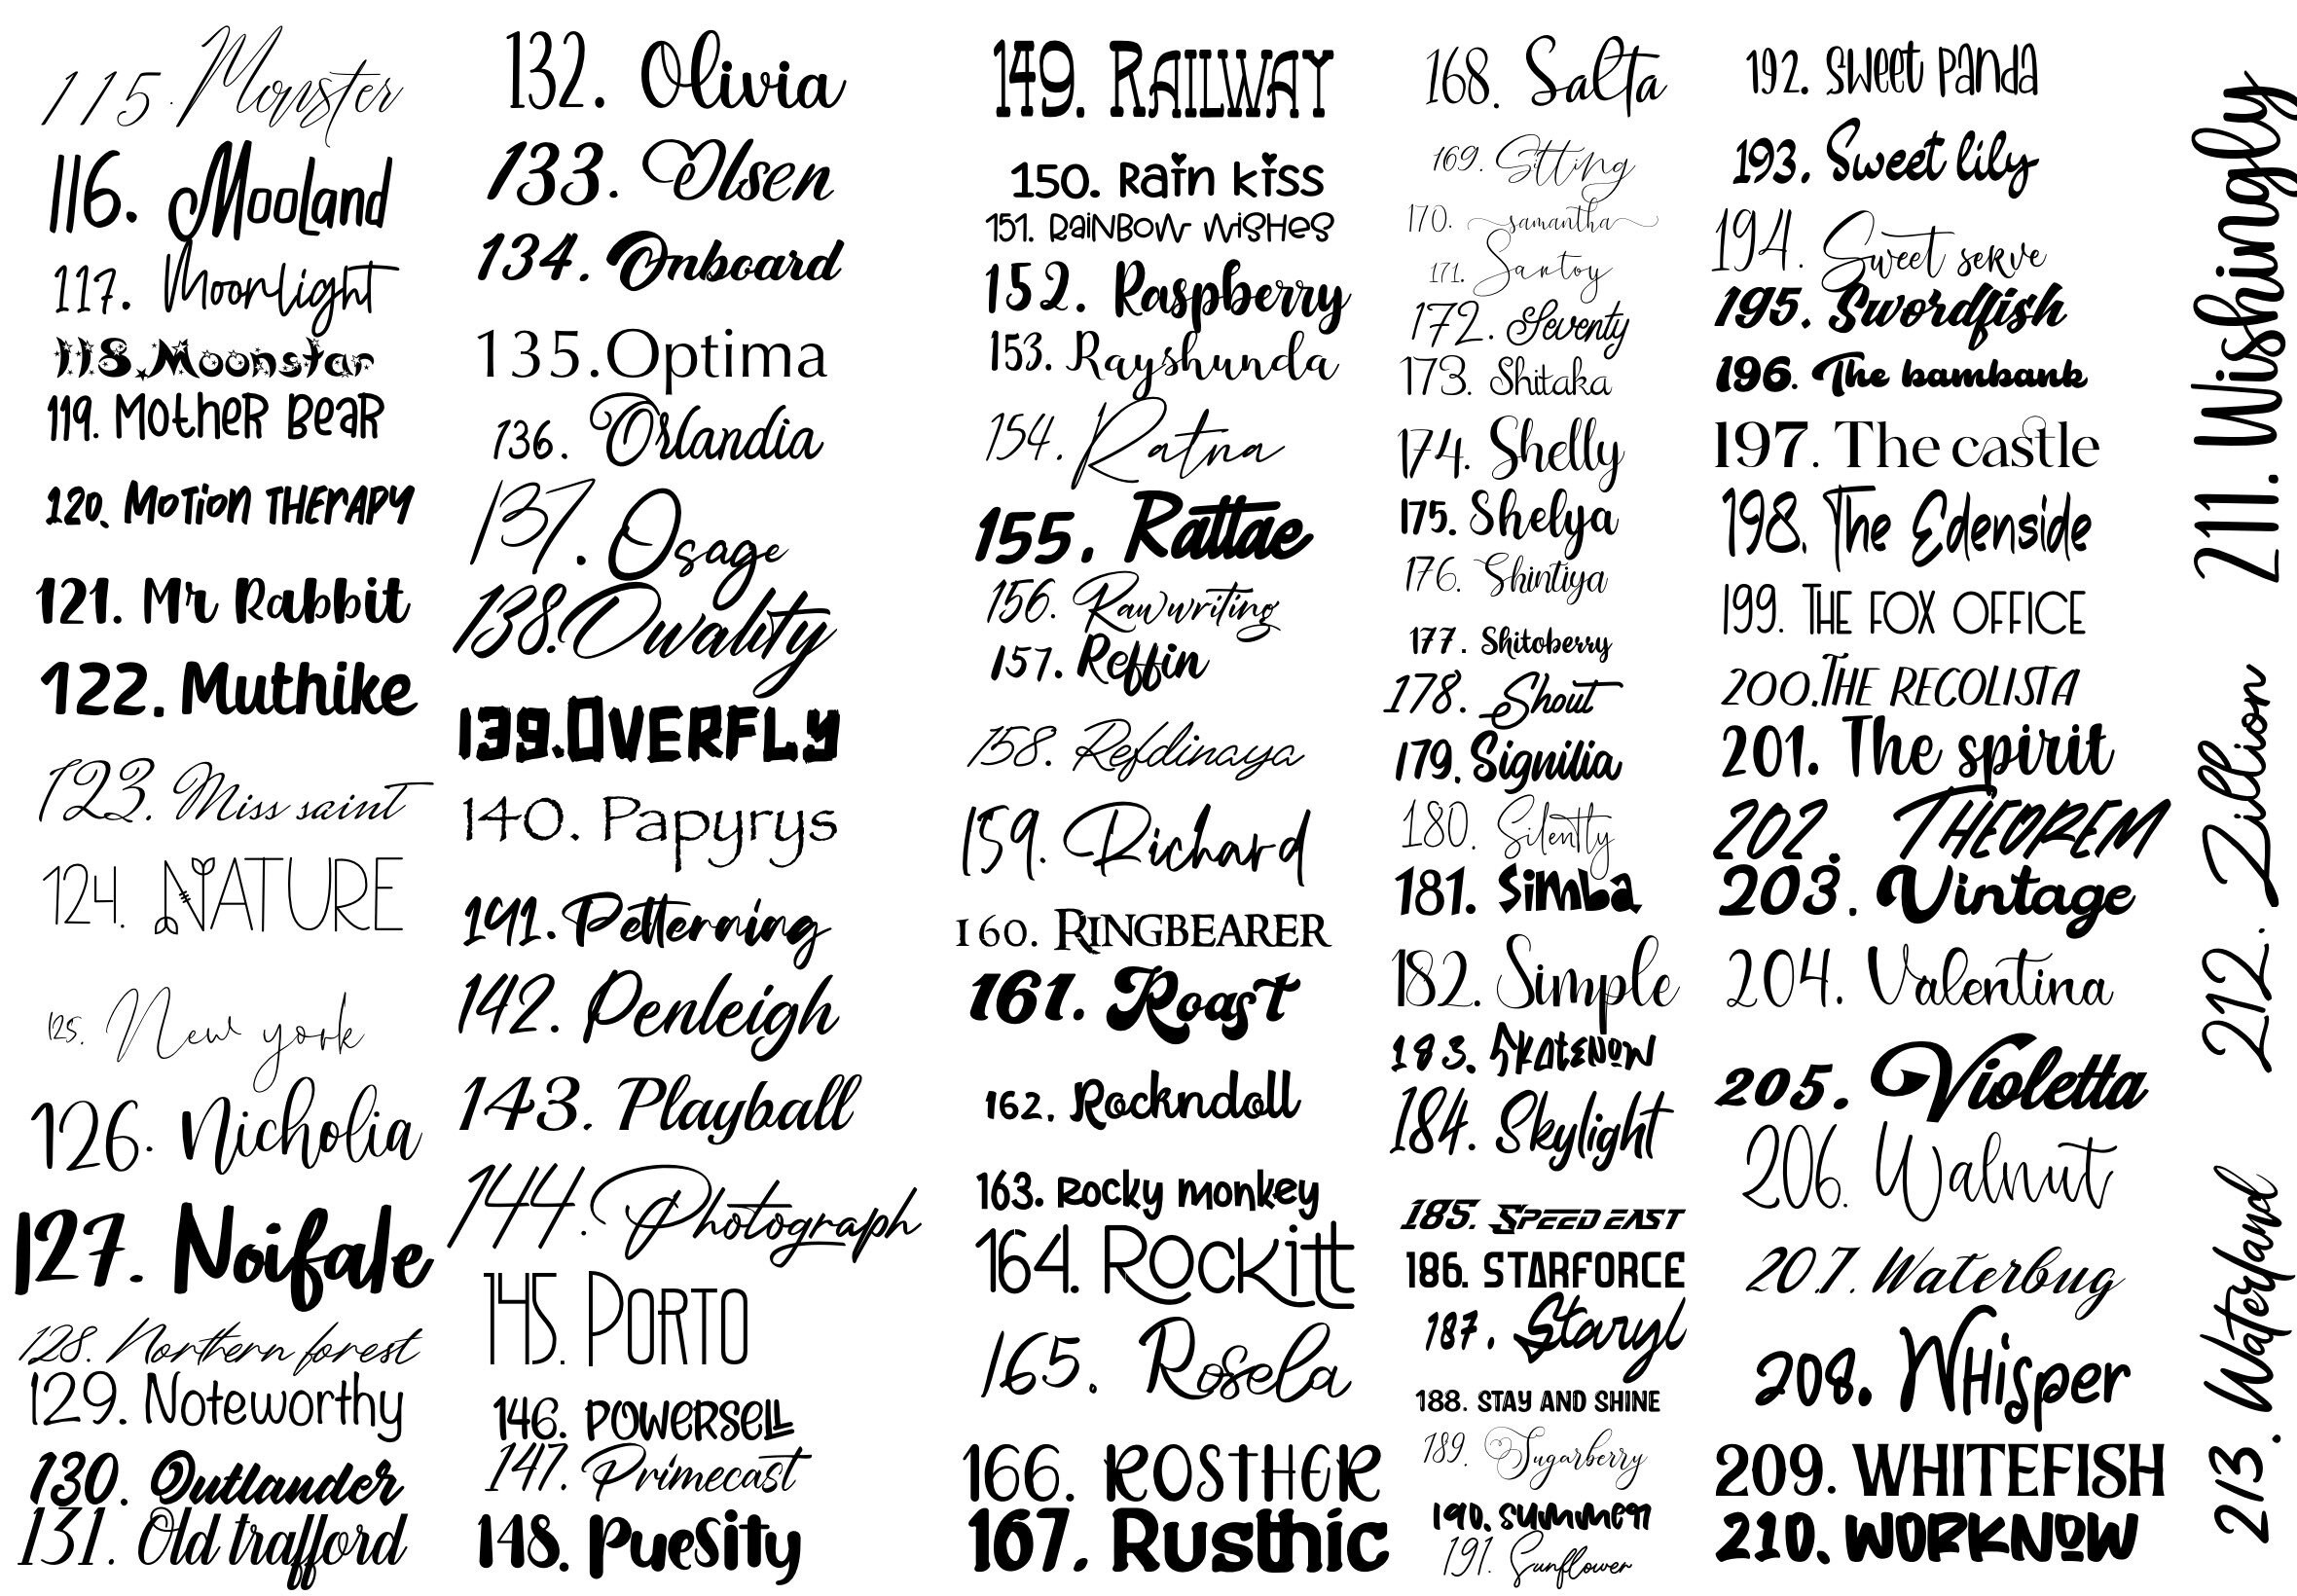 115. Monster
116. Mooland
117. Moonlight
118. Moonstar
119. MOTHER BEAR
120. MOTION THERAPY
121. Mr Rabbit
122. Muthike
123. Miss saint
124. NATURE
125. New york
126. Nicholia
127. Noifale
128. Northern forest
129. Noteworthy
130. Outlander
131. Old trafford
132. Olivia
133. Olsen
134. Onboard
135.Optima
136. Orlandia
137. Osage
138.Owality
139.OVERFLY
140. Papyrys
191. Petterning
142. Penleigh
143. Playball
144. Photograph
145. PORTO
146. POWERSELL
147. Primecast
148. Puesity
149. RAILWAY
150. Rain kiss
151. RAINBOW WISHES
152. Raspberry
153. Rayshunda
154. Ratna
155. Rattae
156. Rawwriting
157. Reffin
158. Refdinaya
159. Richard
160. RINGBEARER
161. Roast
162. Rockndoll
163. Rocky monkey
164. ROCKitt
165. Rosela
166. ROSTHER
167. Rusthic
168. Salta
169. Sitting
170. samantha
171. Santoy
172. Seventy
173. Shitaka
174. Shelly
175. Shelya
176. Shintiya
177. Shitoberry
178. Shout
179. Signilia
180. Silently
181. Simba
182. Simple
183. SKATENOW
184. Skylight
185. SPEED EAST
186. STARFORCE
187. Staryl
188. STAY AND SHINE
189. Sugarberry
190. summer
191. Sunflower
192. Sweet Panda
193. Sweet lily
194. Sweet serve
195. Swordfish
196. The bambank
197. The castle
198. The Edenside
199. THE FOX OFFICE
200.THE RECOLISTA
201. The spirit
202. THEOREM
203. Vintage
204. Valentina
205. Violetta
206. Walnut
207. Waterbug
208. WHisper
209. WHITEFISH
210. WORKNOW
211. Wishingly
212. Zillion
213. Waterland